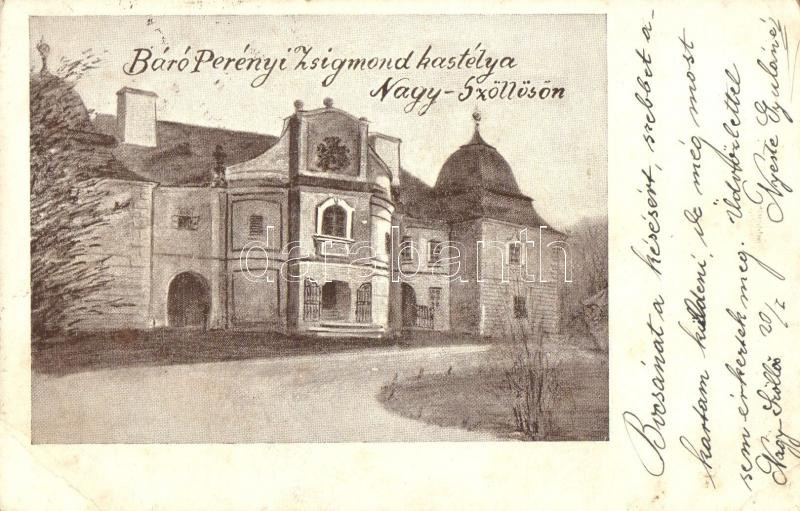 Báró Perényi Zsigmond kastélya
Nagy-Szöllösön
darabanth.com
Bocsánat a késésért, szebbet a-
kartam küldeni, de még most
sem érkertek meg. Üdvözlettel
Nagy-Szöllös Nyeste Gyuláné